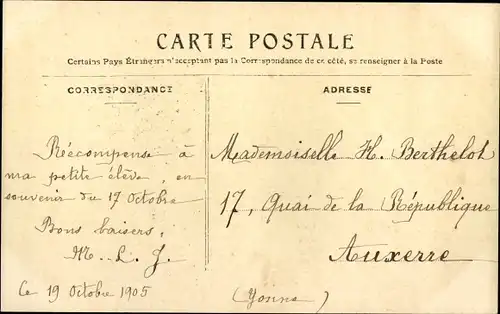 CARTE POSTALE
Certains Pays Étrangers n'acceptant pas la Correspondance de ce côté, se renseigner à la Poste
CORRESPONDANCE
Récompense à
ma petite élève, en
souvenir du 17 Octobre
Bons baisers,
M. L. J.
Ce 19 Octobre 1905
ADRESSE
Mademoiselle H. Berthelot
17, Quai de la République
Auxerre
(Yonne)